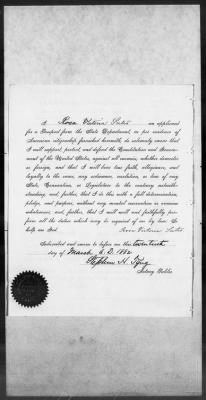 I Rosa Victoria, an applicant
for a Passport from the State Department, on per evidence of
American citizenship furnished herewith, do solemnly swear that
I will support, protect, and defend the Constitution and Govern-
ment of the United States, against all enemies, whether domestic
or foreign, and that I will bear true faith, allegiance, and
loyalty to the same, any ordinance, resolution, or law of any
State, Convention, or Legislature to the contrary notwith-
standing; and further, that I do this with a full determination,
pledge, and purpose, without any mental reservation or evasion
whatsoever; and, further, that I will well and faithfully per-
form all the duties which may be required of me by law. So
help me God.
Rosa Victoria
Subscribed and sworn to before me this twentieth
day of March A.D. 1882
Stephen H.
Notary Public